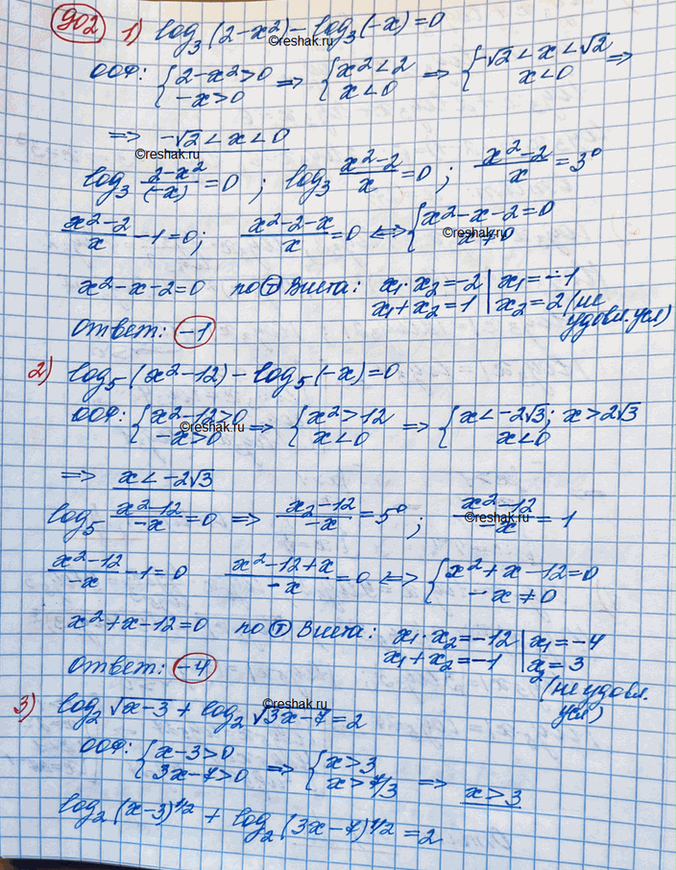 902 1) log₃(2-x²) - log₃(-x) = 0
©reshak.ru
ООФ: {2-x²>0 ; -x>0 ⇒ {x²<2 ; x<0 ⇒ {-√2<x<√2 ; x<0 ⇒
⇒ -√2<x<0
©reshak.ru
log₃ (2-x²)/(-x) = 0 ; log₃ (x²-2)/x = 0 ; (x²-2)/x = 3⁰
(x²-2)/x - 1 = 0 ; (x²-2-x)/x = 0 ⇔ {x²-x-2=0 ; x≠0
©reshak.ru
x²-x-2=0 по Ⓣ Виета: x₁·x₂=-2 | x₁=-1
x₁+x₂=1 | x₂=2 (не удовл. усл)
Ответ: -1
2) log₅(x²-12) - log₅(-x) = 0
ООФ: {x²-12>0 ; -x>0 ⇒ {x²>12 ; x<0 ⇒ {x<-2√3; x>2√3 ; x<0
©reshak.ru
⇒ x<-2√3
log₅ (x²-12)/(-x) = 0 ⇒ (x₂-12)/(-x) = 5⁰ ; (x²-12)/(-x) = 1
©reshak.ru
(x²-12)/(-x) - 1 = 0 (x²-12+x)/(-x) = 0 ⇔ {x²+x-12=0 ; -x≠0
x²+x-12=0 по Ⓣ Виета: x₁·x₂=-12 | x₁=-4
x₁+x₂=-1 | x₂=3 (не удовл. усл)
Ответ: -4
3) log₂√x-3 + log₂√3x-7 = 2
©reshak.ru
ООФ: {x-3>0 ; 3x-7>0 ⇒ {x>3 ; x>7/3 ⇒ x>3
log₂(x-3)^1/2 + log₂(3x-7)^1/2 = 2